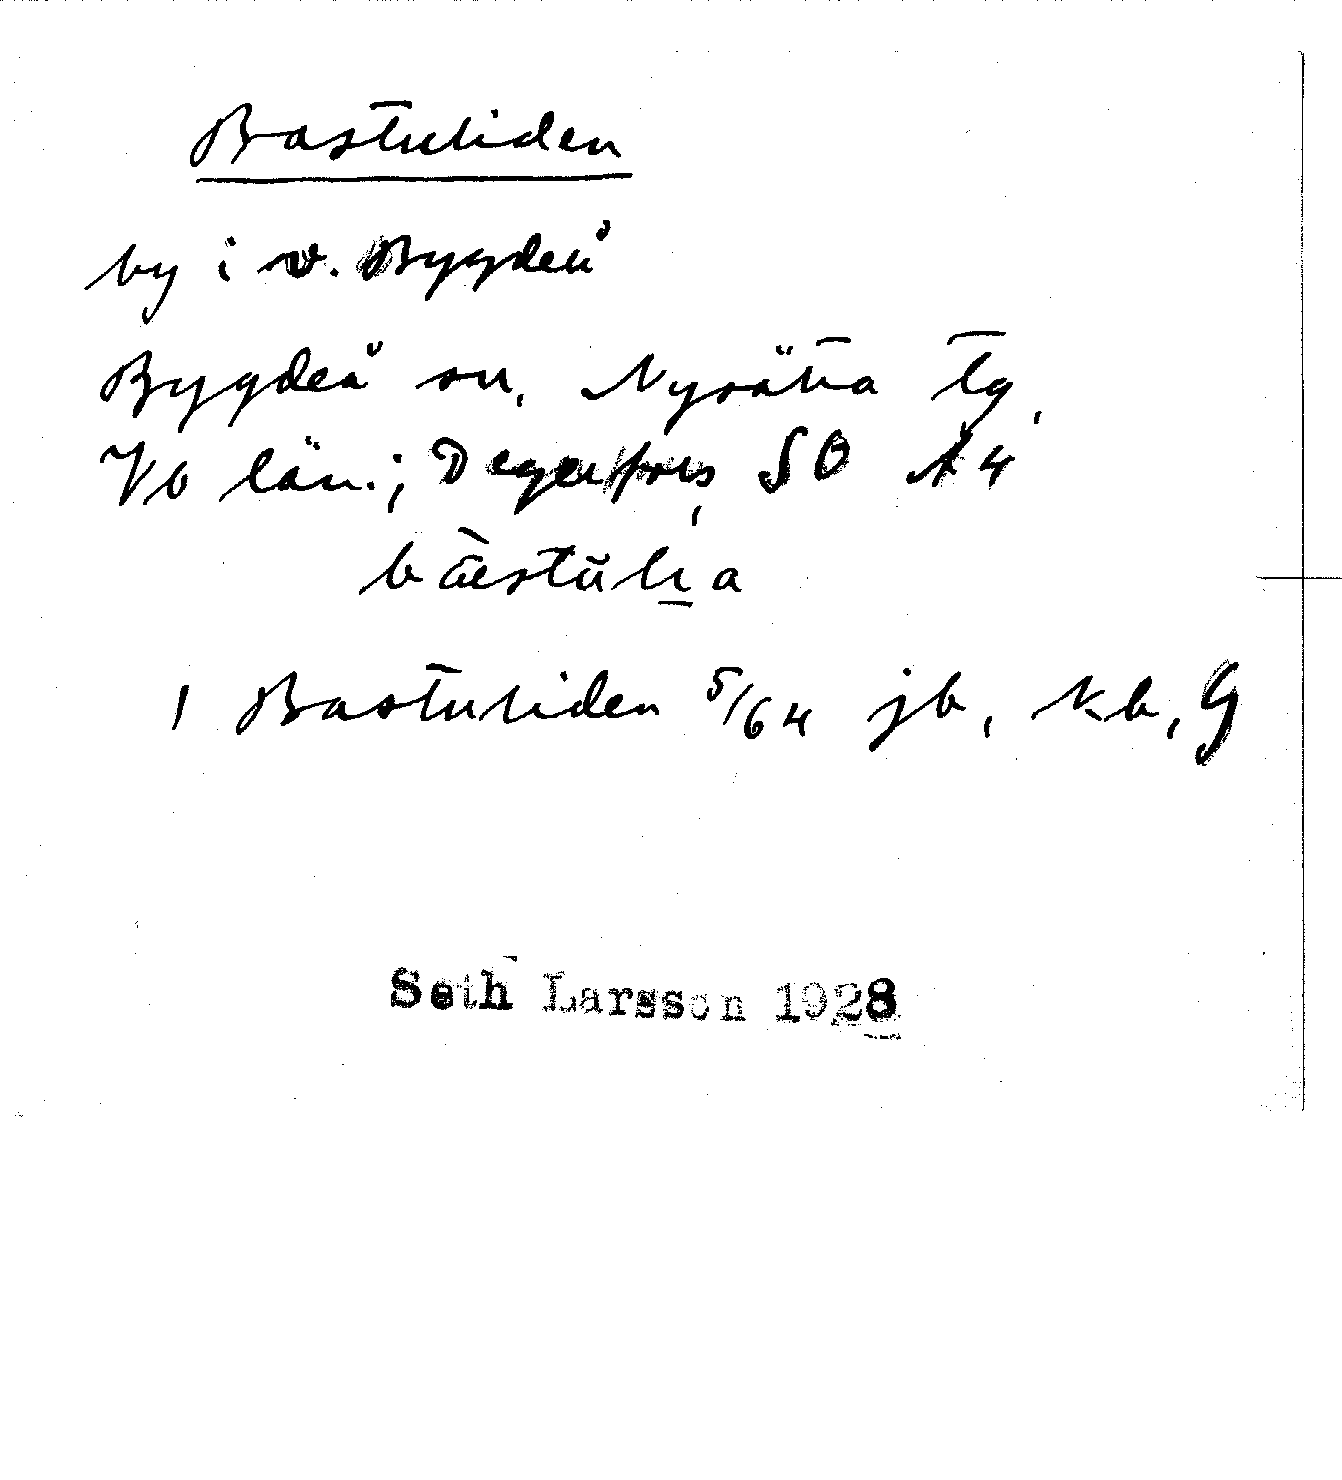 Bastuliden
by i v. Bygdeå
Bygdeå sn, Nysätra tg,
Vb län.; Degerfors SO Å4
1 Bastuliden 5/64 jb, kb, G
Seth Larsson 1928